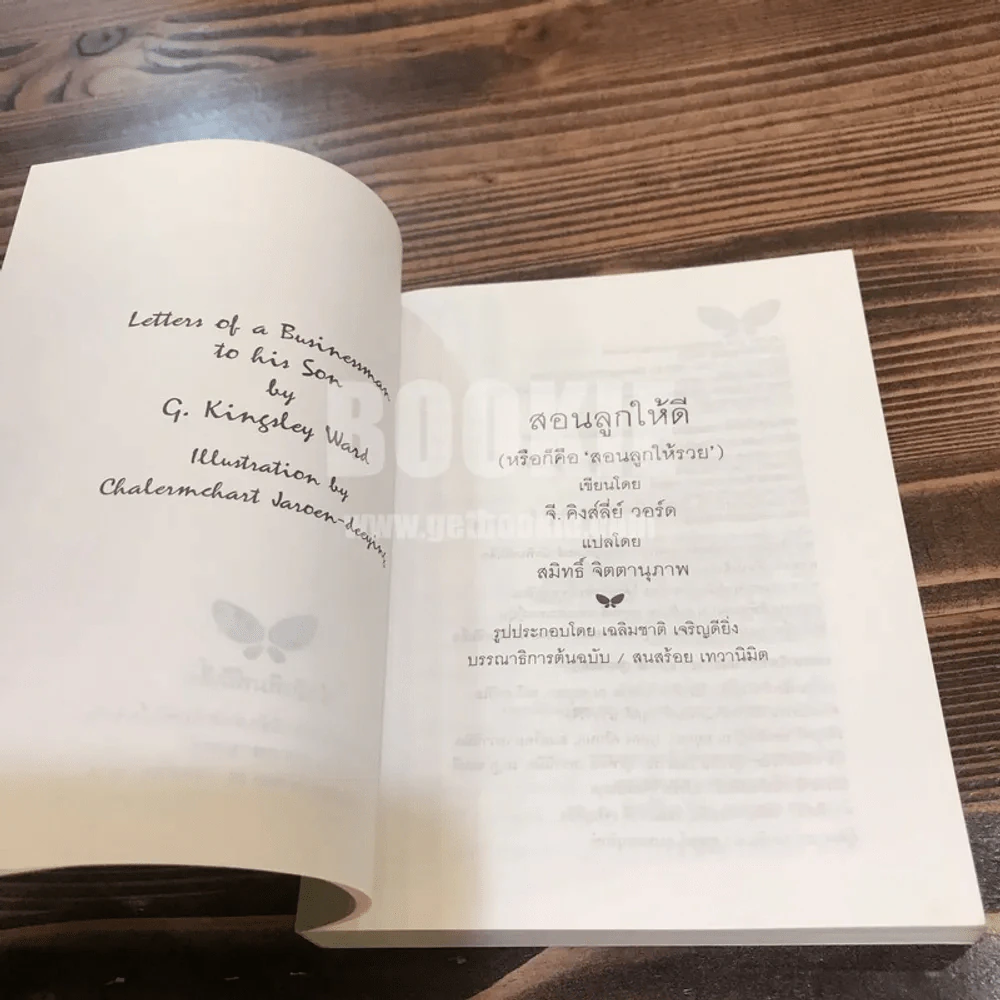 Letters of a Businessman
to his Son
by
G. Kingsley Ward
Illustration by
Chalermchart Jaroen-deeying
สอนลูกให้ดี
(หรือก็คือ 'สอนลูกให้รวย')
เขียนโดย
จี. คิงส์ลี่ย์ วอร์ด
แปลโดย
สมิทธิ์ จิตตานุภาพ
รูปประกอบโดย เฉลิมชาติ เจริญดียิ่ง
บรรณาธิการต้นฉบับ / สนสร้อย เทวานิมิต
www.getbookie.com